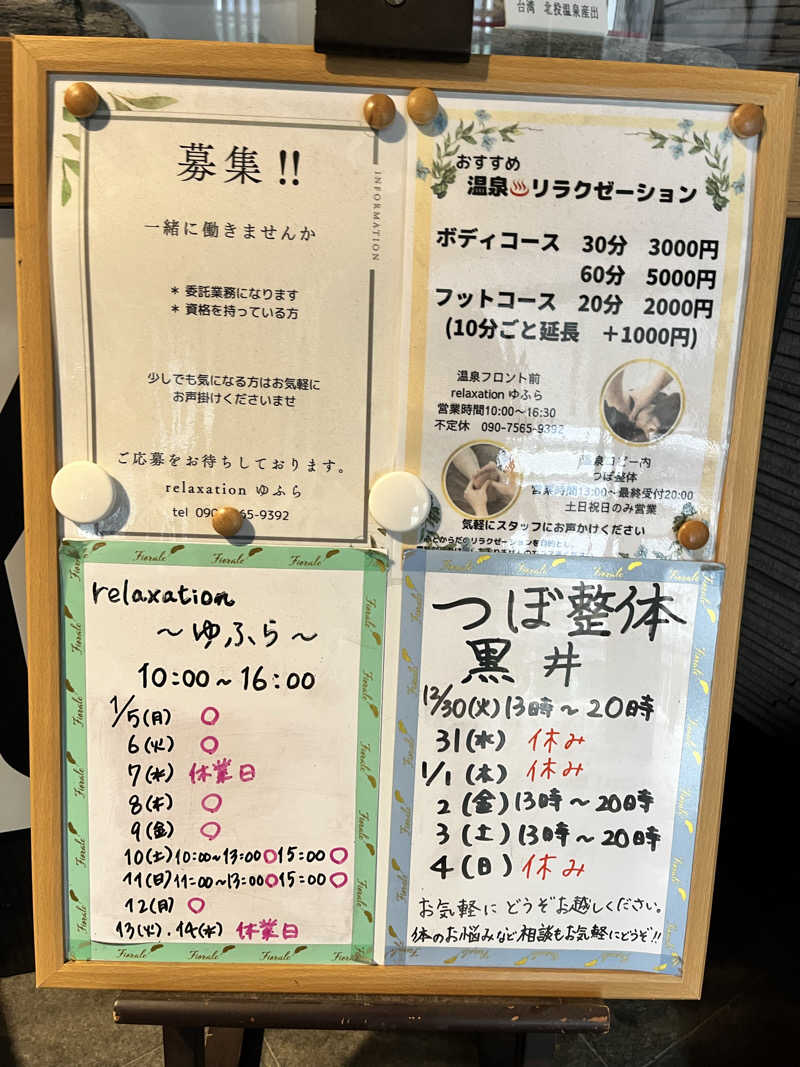 台湾 北投温泉産出
募集!!
INFORMATION
一緒に働きませんか
* 委託業務になります
* 資格を持っている方
少しでも気になる方はお気軽に
お声掛けくださいませ
ご応募をお待ちしております。
relaxation ゆふら
tel 090 65-9392
おすすめ
温泉♨リラクゼーション
ボディコース 30分 3000円
60分 5000円
フットコース 20分 2000円
(10分ごと延長 +1000円)
温泉フロント前
relaxation ゆふら
営業時間10:00〜16:30
不定休 090-7565-9392
温泉ロビー内
つぼ整体
営業時間13:00〜最終受付20:00
土日祝日のみ営業
気軽にスタッフにお声かけください
relaxation
〜ゆふら〜
10:00〜16:00
1/5(月) ○
6(火) ○
7(水) 休業日
8(木) ○
9(金) ○
10(土)10:00〜13:00○15:00○
11(日)11:00〜13:00○15:00○
12(月) ○
13(火).14(水) 休業日
つぼ整体
黒井
12/30(火)13時〜20時
31(水) 休み
1/1(木) 休み
2(金)13時〜20時
3(土)13時〜20時
4(日)休み
お気軽にどうぞお越しください。
体のお悩みなど相談もお気軽にどうぞ!!
Fiorale